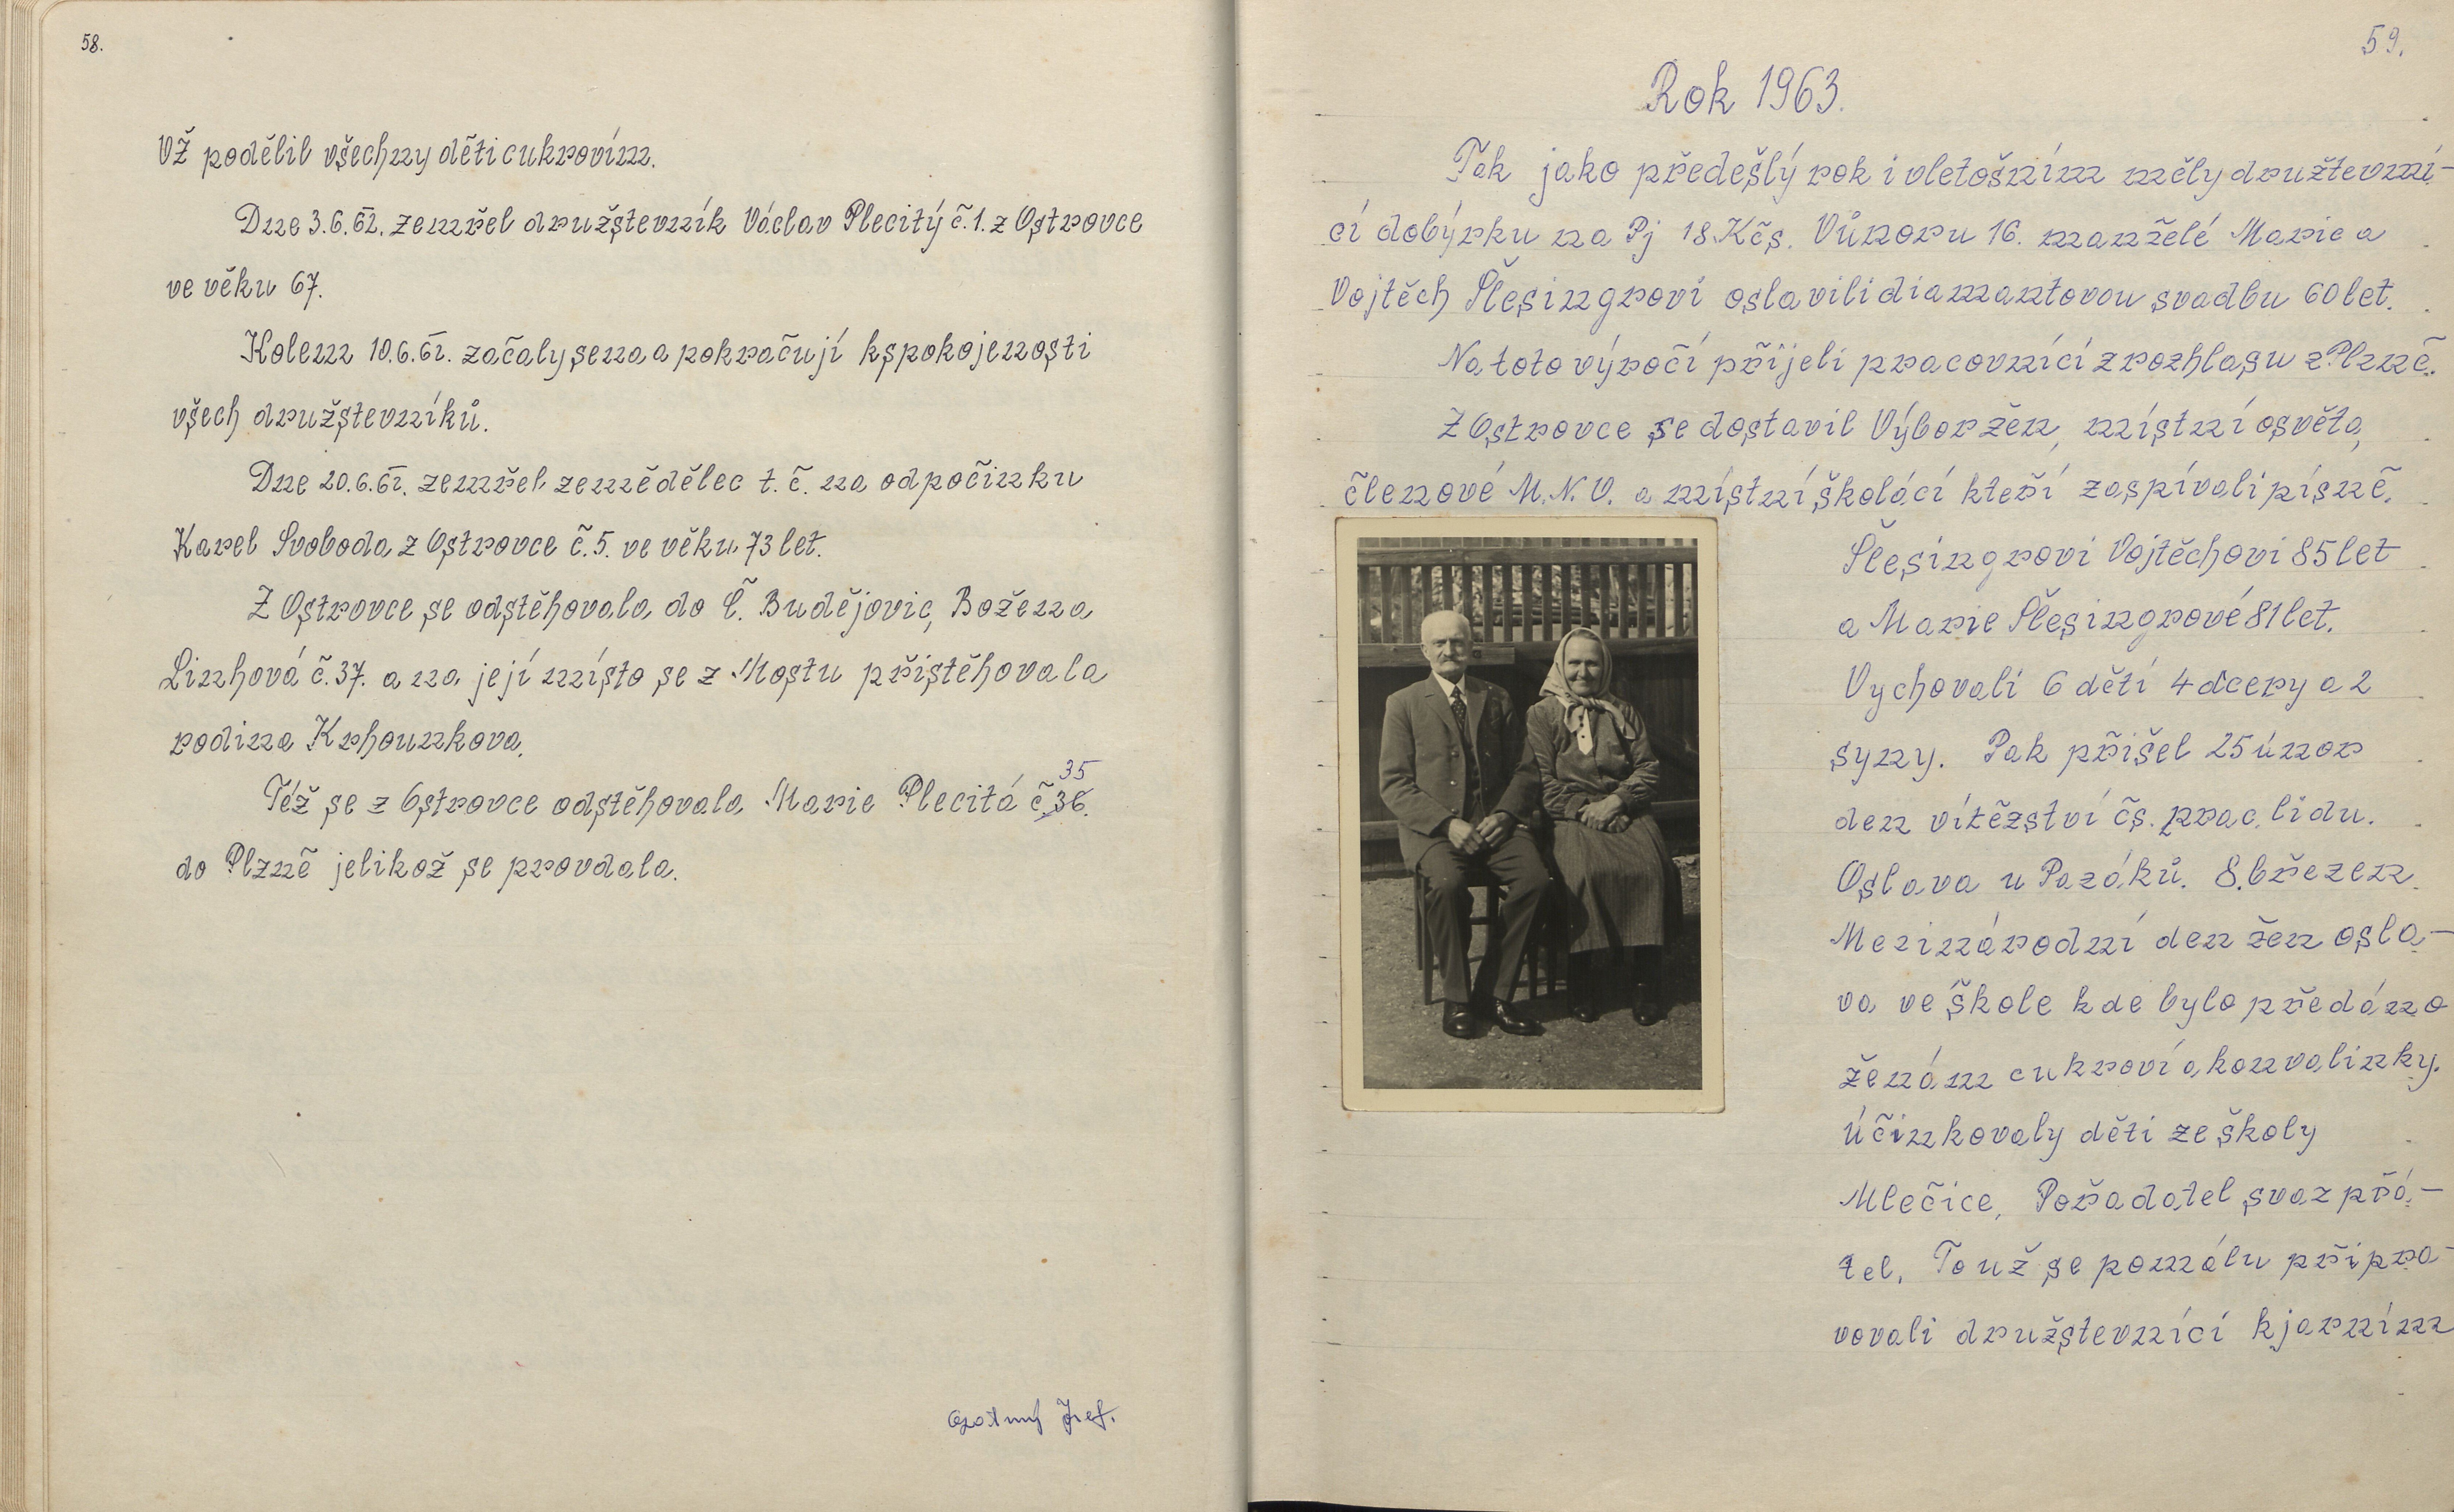 58.
VŽ podělil všechny děti cukrovím.
Dne 3.6.62. zemřel družstevník Václav Plecitý č.1. z Ostrovce
ve věku 67.
Kolem 10.6.62. začaly sena a pokračují k spokojenosti
všech družstevníků.
Dne 20.6.62. zemřel zemědělec t. č. na odpočinku
Karel Svoboda z Ostrovce č.5. ve věku 73 let.
Z Ostrovce se odstěhovala do Č. Budějovic, Božena
Linhová č.37. a na její místo se z Mostu přistěhovala
rodina Krhounkova.
35
Též se z Ostrovce odstěhovala Marie Plecitá č.36.
do Plzně jelikož se provdala.
59.
Rok 1963.
Tak jako předešlý rok i vletošním měly družtevní-
cí dobýrku na Pj 18 Kčs. Vůnoru 16. manželé Marie a
Vojtěch Šlesingrovi oslavili diamantovou svadbu 60 let.
Na toto výročí přijeli pracovníci z rozhlasu z Plzně.
Z Ostrovce se dostavil Výboržen, místní osvěta,
členové M.N.V. a místní školáci kteří zaspívali písně.
Šlesingrovi Vojtěchovi 85 let
a Marie Šlesingrové 81 let.
Vychovali 6 dětí 4 dcery a 2
syny. Pak přišel 25 únor
den vítězství čs. prac. lidu.
Oslava u Pazáků. 8. březen
Mezinárodní den žen osla-
va ve škole kde bylo předáno
ženám cukroví a konvalinky.
Účinkovaly děti ze školy
Mlečice, Pořadatel svaz přá-
tel. To už se pomálu připra-
vovali družstevníci k jarním